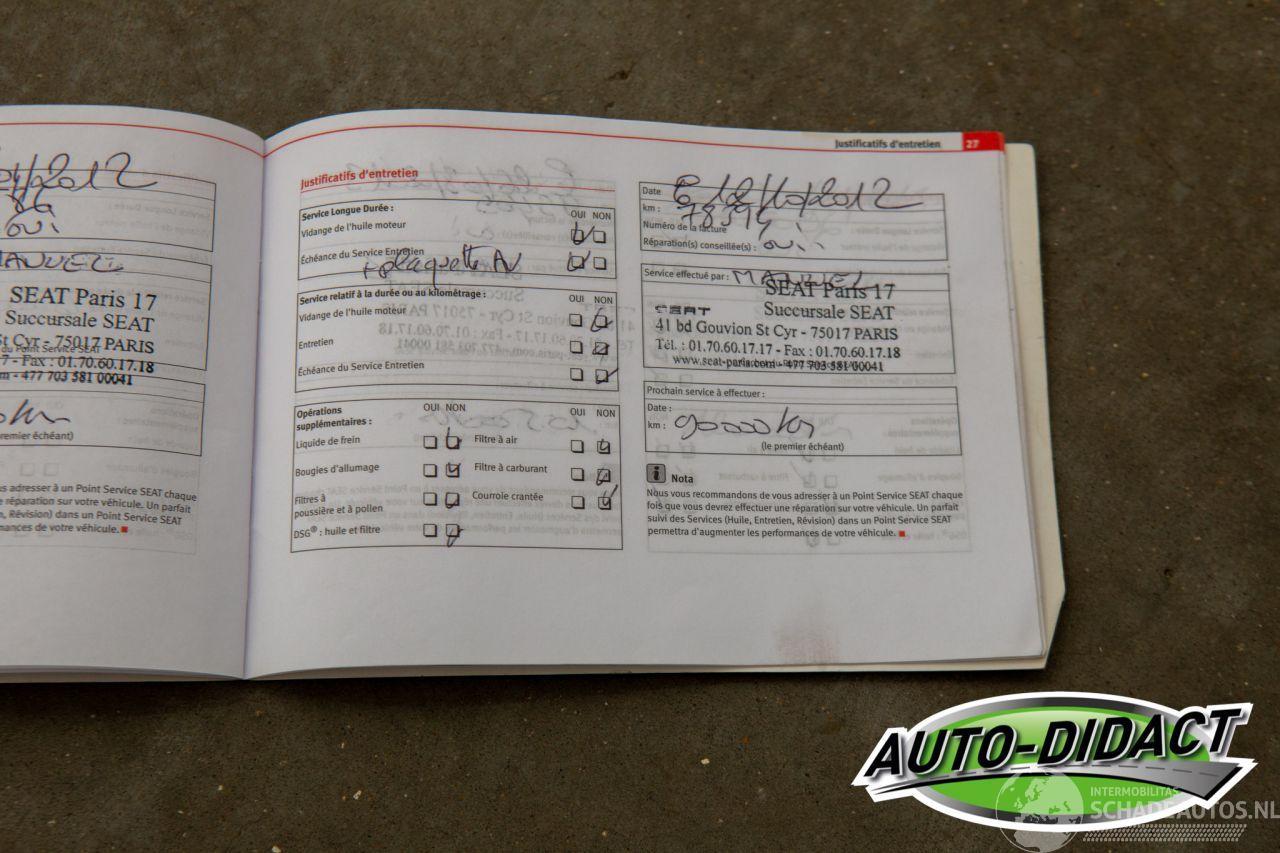 /2012
oui
MANUEL
SEAT Paris 17
Succursale SEAT
St Cyr - 75017 PARIS
7 - Fax : 01.70.60.17.18
om - 477 703 581 00041
km
premier échéant)
us adresser à un Point Service SEAT chaque
réparation sur votre véhicule. Un parfait
n, Révision) dans un Point Service SEAT
mances de votre véhicule.
Justificatifs d'entretien 27
Justificatifs d'entretien
Service Longue Durée :
OUI NON
Vidange de l'huile moteur
Échéance du Service Entretien
+ plaquette AV
Service relatif à la durée ou au kilométrage :
OUI NON
Vidange de l'huile moteur
Entretien
Échéance du Service Entretien
Opérations supplémentaires :
OUI NON
OUI NON
Liquide de frein
Filtre à air
Bougies d'allumage
Filtre à carburant
Filtres à
poussière et à pollen
Courroie crantée
DSG® : huile et filtre
Date 2012
km : 78394
Numéro de la facture
Réparation(s) conseillée(s) : oui
Service effectué par : MANUEL
SEAT Paris 17
SEAT Succursale SEAT
41 bd Gouvion St Cyr - 75017 PARIS
Tél. : 01.70.60.17.17 - Fax : 01.70.60.17.18
www.seat-paris.com - 477 703 581 00041
Prochain service à effectuer :
Date :
km : 90000 km
(le premier échéant)
i Nota
Nous vous recommandons de vous adresser à un Point Service SEAT chaque
fois que vous devrez effectuer une réparation sur votre véhicule. Un parfait
suivi des Services (Huile, Entretien, Révision) dans un Point Service SEAT
permettra d'augmenter les performances de votre véhicule.
AUTO-DIDACT
INTERMOBILITAS
SCHADEAUTOS.NL